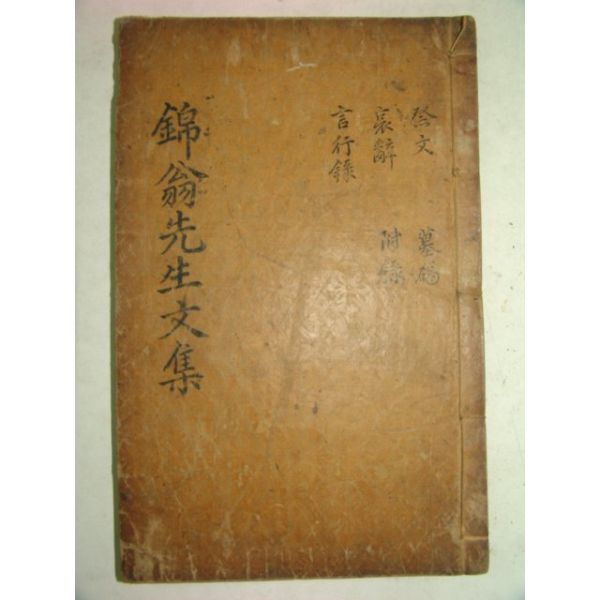 祭文 墓碣
哀辭 附錄
言行錄
錦翁先生文集